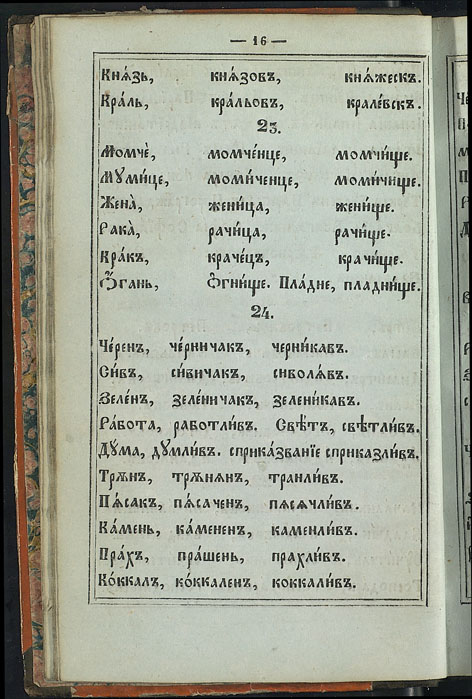 — 16 —
Кнѧ́зь, кнѧ́зовъ, кнѧ́жескъ.
Кра́ль, кра́льовъ, крале́вскъ.
23.
Момчѐ, момче́нце, момчи́ще.
Мʊми́це, моми́ченце, моми́чище.
Жена̀, жени́ца, жени́ще.
Рака̀, рачи́ца, рачи́ще.
Кра́къ, краче́цъ, крачи́ще.
Ѻ́гань, Ѻгни́ще. Пла́дне, пладни́ще.
24.
Че́ренъ, че́рничакъ, черни́кавъ.
Си́въ, си́вичакъ, сиволѧ́въ.
Зеле́нъ, зеле́ничакъ, зелени́кавъ.
Ра́бота, работли́въ. Свѣ́тъ, свѣтли́въ.
Дꙋ́ма, дꙋмли́въ. сприка́званїе сприказли́въ.
Трѫ́нъ, трѫ́нѧнъ, транли́въ.
Пѧ́сакъ, пѧ́саченъ, пѧсѧчли́въ.
Ка́мень, ка́мененъ, каменли́въ.
Пра́хъ, пра́шень, прахли́въ.
Ко́ккалъ, ко́ккаленъ, коккали́въ.